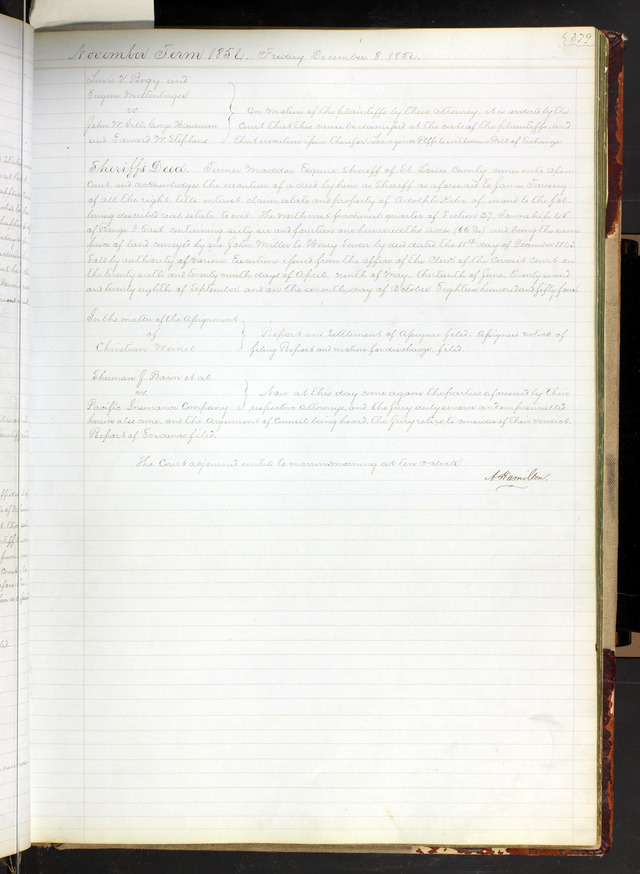 379
November Term 1854. Friday December 8. 1854.
Louis V. Bogy and
Eugene Miltenberger
vs
John W. Gill, George
and Edward W. Stephens
On motion of the plaintiffs by their attorney, it is ordered by the
Court that this cause be dismissed at the costs of the plaintiffs, and
that execution issue therefor.
Bill of Exchange
Sheriffs Deed. Turner Maddox Esquire Sheriff of St. Louis County comes into Open
Court and acknowledges the execution of a deed by him as Sheriff as aforesaid to James
of all the right, title, interest, claim, estate and property of Adolph of in and to the fol
lowing described real estate to wit. The northwest fractional quarter of Section 27. Township
of Range East containing sixty six and fourteen one hundredths Acres and being the same
piece of land conveyed by one John Miller to Henry by deed dated the 11th day of December
Sold by authority of various Executions issued from the Office of the Clerk of the Circuit Court on
the twenty sixth and twenty ninth days of April, ninth of May, thirteenth of June, twenty
and twenty eighth of September, and on the seventh day of October Eighteen hundred and fifty four
In the matter of the Assignment
of
Christian Weinel
Report and Settlement of Assignee filed. Assignees notice of
filing Report and motion for discharge, filed.
Sherman J. Bacon et al.
vs
Pacific Insurance Company
Now at this day come again the parties aforesaid by their
respective Attorneys, and the jury duly sworn and empannelled
herein also come, and the Argument of Counsel being heard the Jury retire to consider of their verdict.
Report of Evidence filed.
The Court adjourned until to morrow morning at ten o'clock
A. Hamilton.